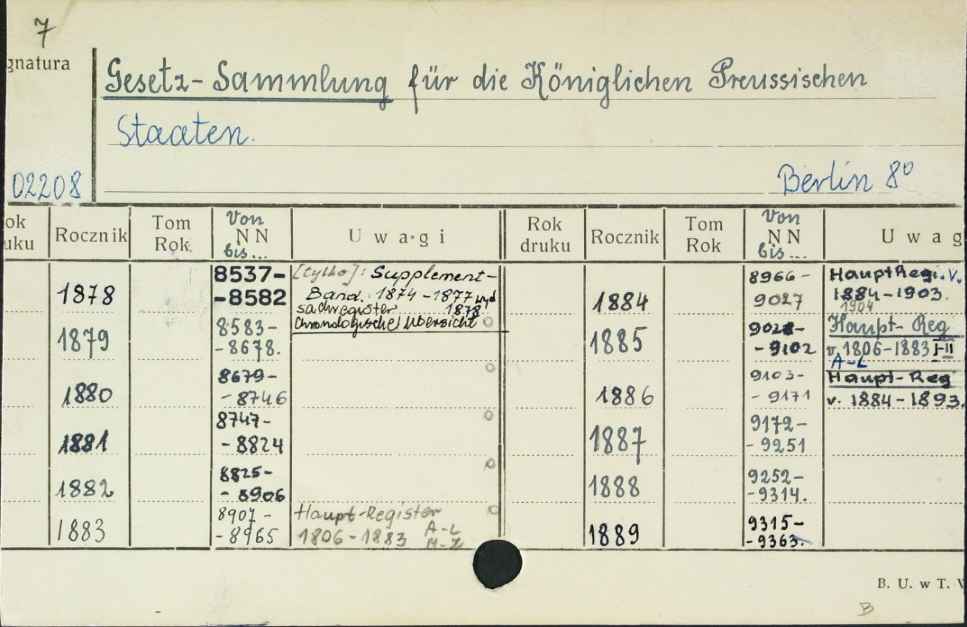 7
gnatura
Gesetz-Sammlung für die Königlichen Preussischen
Staaten.
02208
Berlin 8°
ok
uku
Rocznik
Tom
Rok
Von
NN
bis...
Uwagi
Rok
druku
Rocznik
Tom
Rok
Von
NN
bis...
Uwag
1878
8537-
-8582
[tylko]: Supplement-
Band. 1874-1877 wyd
1878
Sachregister
Chronologische Übersicht
1879
8583-
-8678.
1880
8679-
-8746
1881
8747-
-8824
1882
8825-
-8906
1883
8907-
-8965
Haupt-Register
1806-1883 A-L
M-Z
1884
8966-
9027
Haupt Regi. v.
1884-1903.
1904
1885
9028-
-9102
Haupt-Reg
v. 1806-1883 I-II
A-L
1886
9103-
-9171
Haupt-Reg
v. 1884-1893.
1887
9172-
-9251
1888
9252-
-9314.
1889
9315-
-9363.
B. U. w T.
B